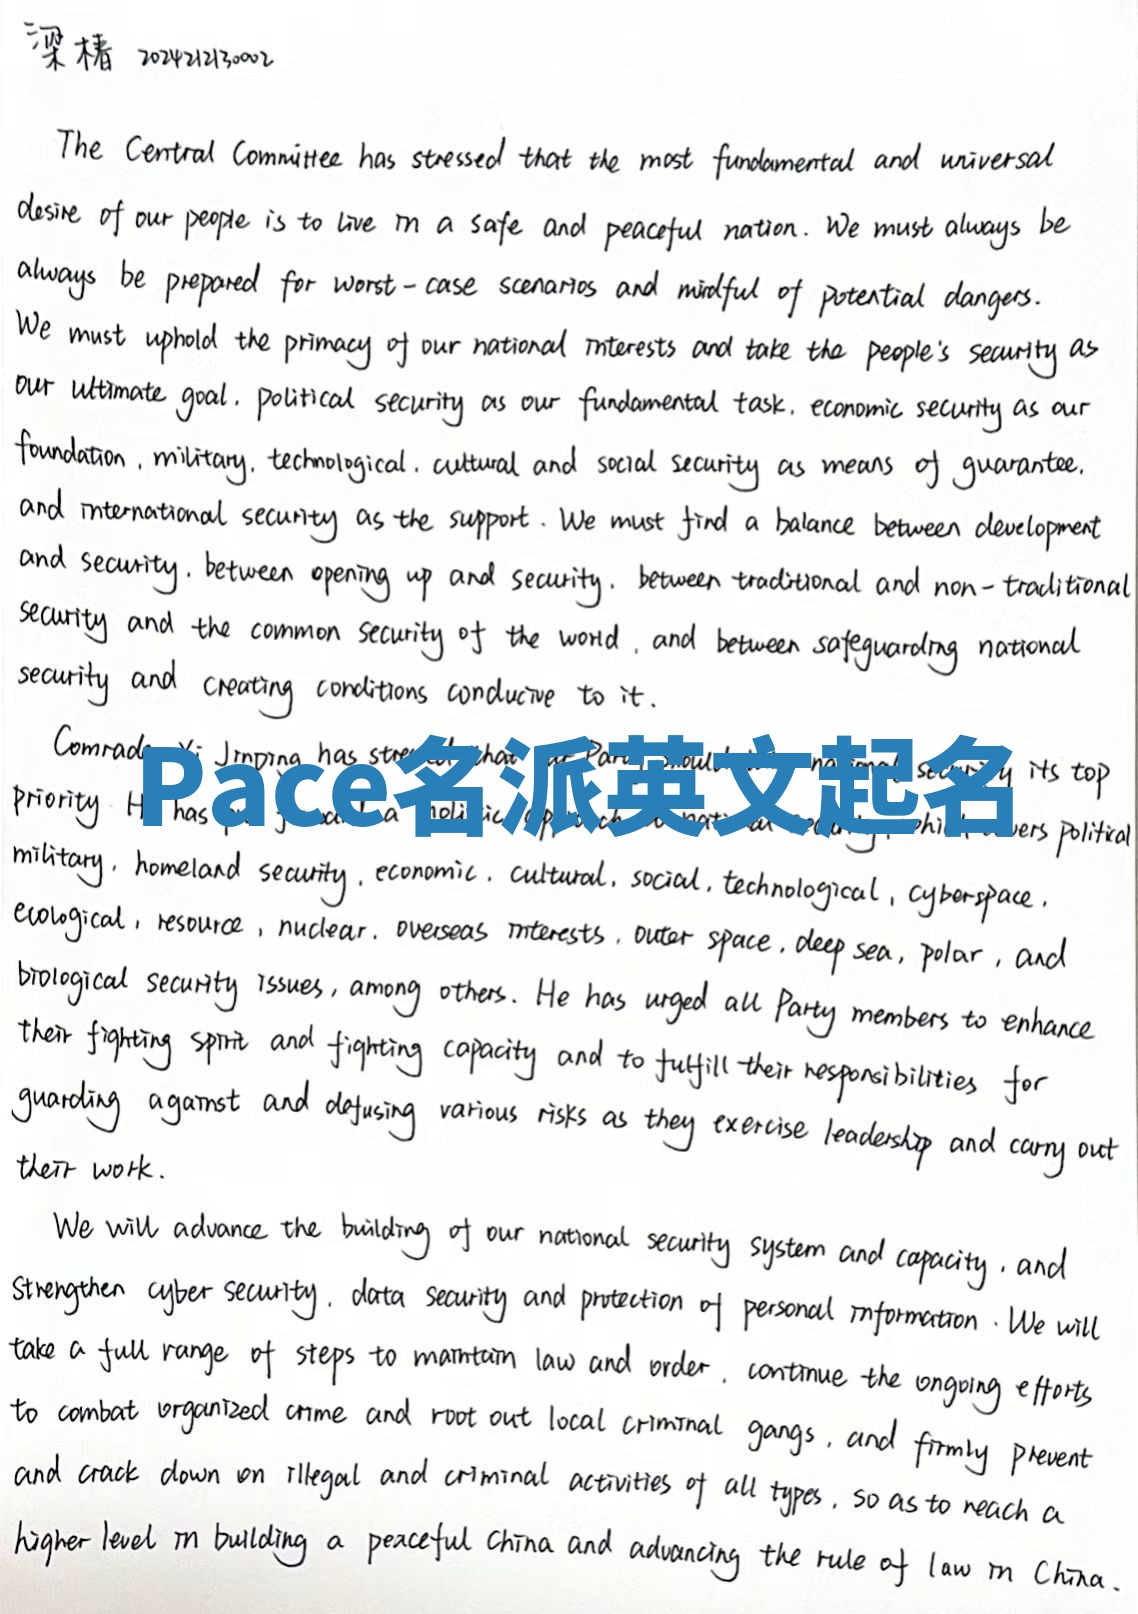 梁椿 2024212130002
The Central Committee has stressed that the most fundamental and universal
desire of our people is to live in a safe and peaceful nation. We must always be
always be prepared for worst-case scenarios and mindful of potential dangers.
We must uphold the primacy of our national interests and take the people's security as
our ultimate goal, political security as our fundamental task, economic security as our
foundation, military, technological, cultural and social security as means of guarantee,
and international security as the support. We must find a balance between development
and security, between opening up and security, between traditional and non-traditional
security and the common security of the world, and between safeguarding national
security and creating conditions conducive to it.
Comrade Xi Jinping has that national security its top
priority. He has a holistic national political
Pace名派英文起名
military, homeland security, economic, cultural, social, technological, cyberspace,
ecological, resource, nuclear, overseas interests, outer space, deep sea, polar, and
biological security issues, among others. He has urged all Party members to enhance
their fighting spirit and fighting capacity and to fulfill their responsibilities for
guarding against and defusing various risks as they exercise leadership and carry out
their work.
We will advance the building of our national security system and capacity, and
strengthen cyber security, data security and protection of personal information. We will
take a full range of steps to maintain law and order, continue the ongoing efforts
to combat organized crime and root out local criminal gangs, and firmly prevent
and crack down on illegal and criminal activities of all types, so as to reach a
higher level in building a peaceful China and advancing the rule of law in China.